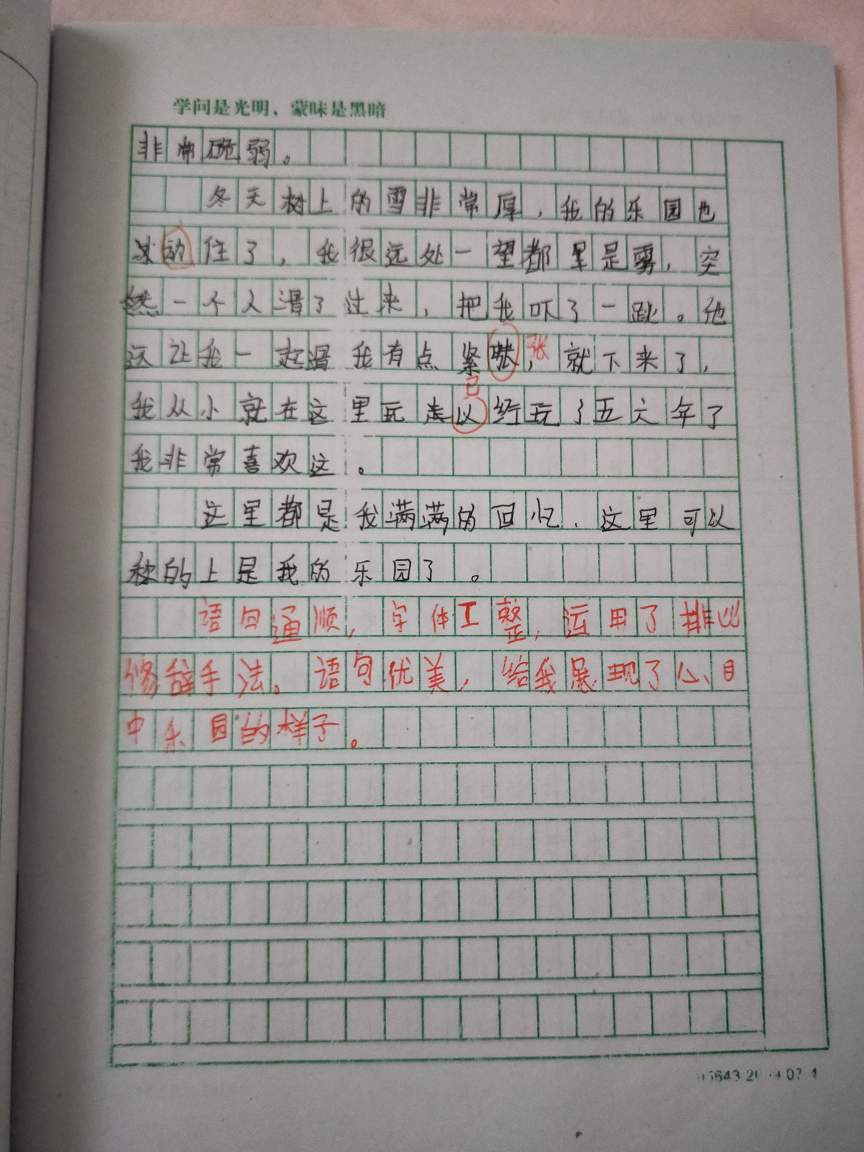 学问是光明，蒙昧是黑暗
非常脆弱。
冬天树上的雪非常厚，我的乐园也
冰的住了，我很远处一望都里是雾，突
然一个人滑了过来，把我吓了一跳。他
还让我一起滑我有点紧张，张就下来了，
已
我从小就在这里玩走以经玩了五六年了
我非常喜欢这。
这里都是我满满的回忆，这里可以
称的上是我的乐园了。
语句通顺，字体工整，运用了排比
修辞手法。语句优美，给我展现了心目
中乐园的样子。